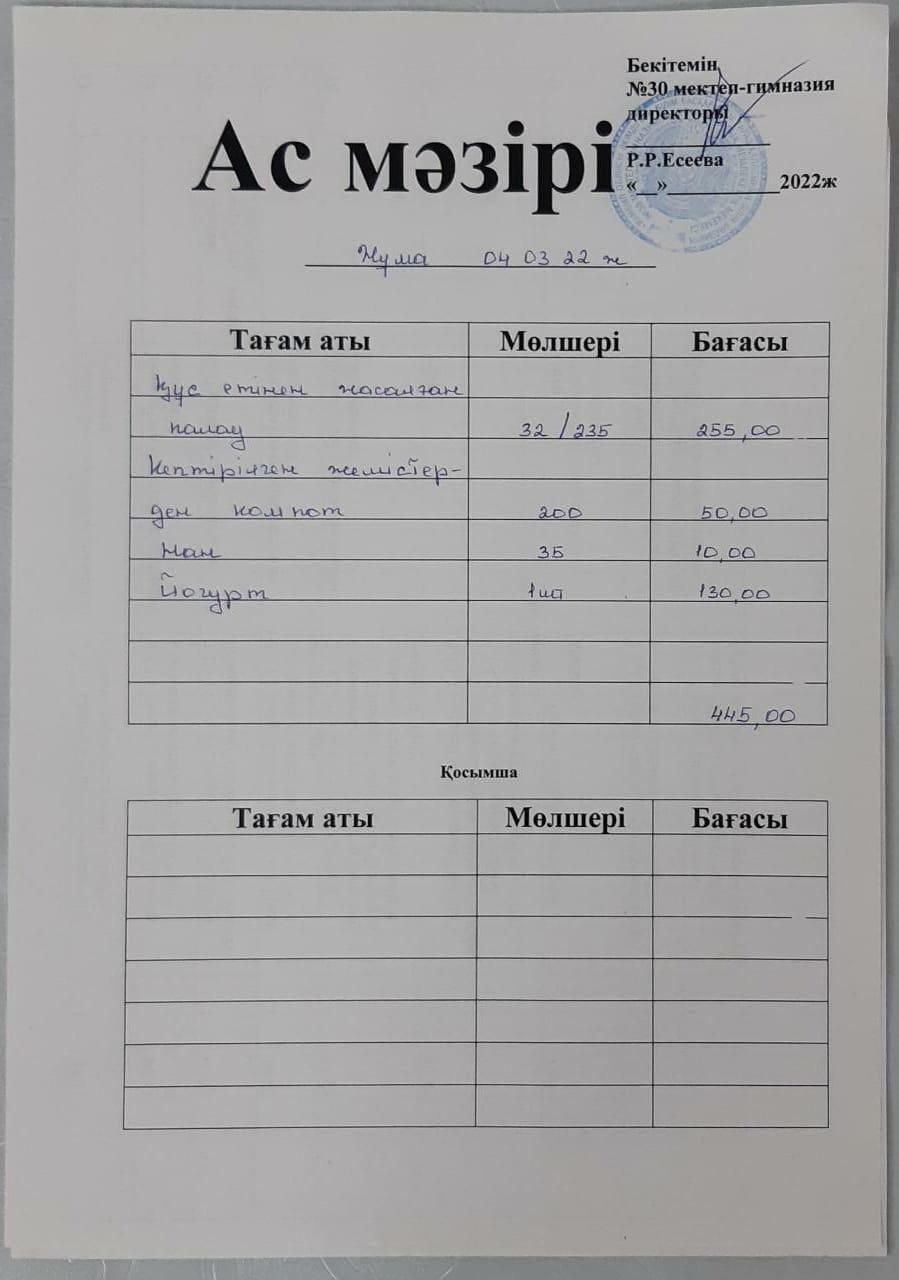 Бекітемін
№30 мектеп-гимназия
директоры
Р.Р.Есеева
«__»___________2022ж
Ас мәзірі
Жұма 04 03 22 ж
Тағам аты Мөлшері Бағасы
Құс етінен жасалған
палау 32/235 255,00
Кептірілген жемістер-
ден компот 200 50,00
Нан 35 10,00
Йогурт 1шт 130,00
445,00
Қосымша
Тағам аты Мөлшері Бағасы